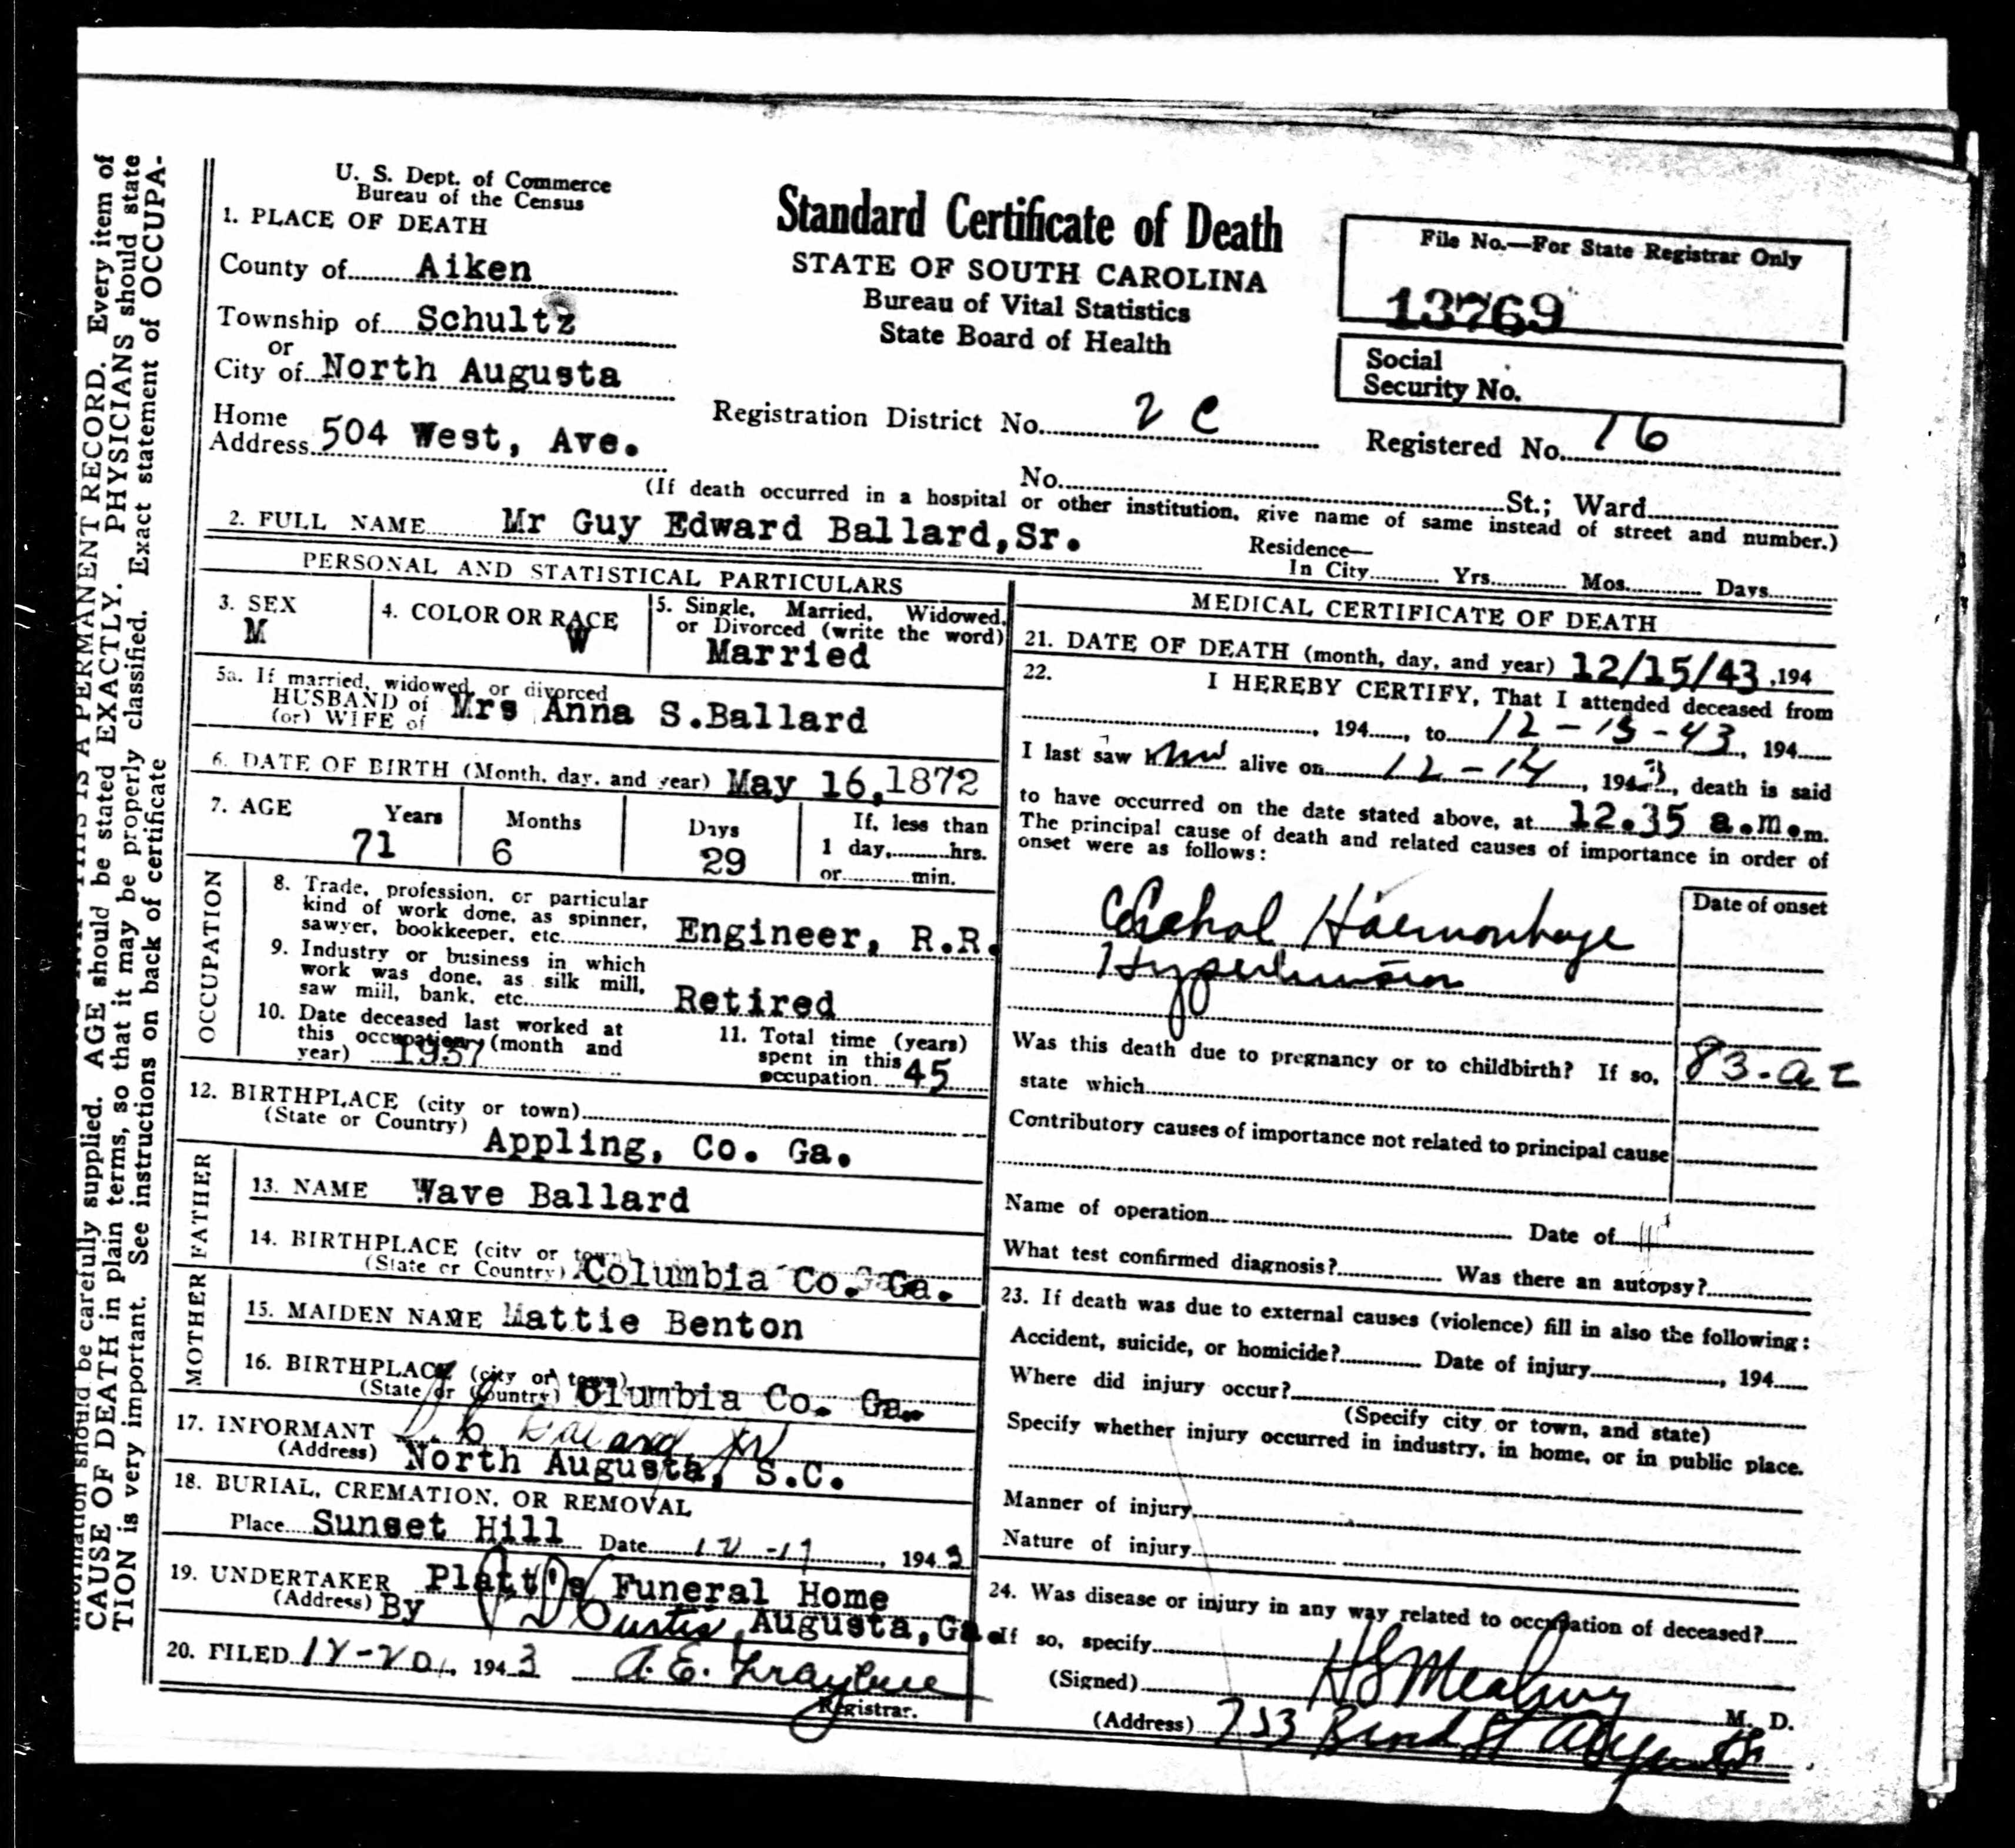 U. S. Dept. of Commerce
Bureau of the Census
1. PLACE OF DEATH
County of Aiken
Township of Schultz
or
City of North Augusta
Home
Address 504 West, Ave.
Standard Certificate of Death
STATE OF SOUTH CAROLINA
Bureau of Vital Statistics
State Board of Health
Registration District No. 2 C
File No.—For State Registrar Only
13769
Social
Security No.
Registered No. 76
No. St.; Ward
(If death occurred in a hospital or other institution, give name of same instead of street and number.)
2. FULL NAME Mr Guy Edward Ballard,Sr.
Residence—
In City Yrs. Mos. Days
PERSONAL AND STATISTICAL PARTICULARS
3. SEX
M
4. COLOR OR RACE
W
5. Single, Married, Widowed,
or Divorced (write the word)
Married
5a. If married, widowed, or divorced
HUSBAND of
(or) WIFE of
Mrs Anna S.Ballard
6. DATE OF BIRTH (Month, day, and year) May 16,1872
7. AGE Years Months Days If, less than
71 6 29 1 day, hrs.
or min.
OCCUPATION
8. Trade, profession, or particular
kind of work done, as spinner,
sawyer, bookkeeper, etc. Engineer, R.R.
9. Industry or business in which
work was done, as silk mill,
saw mill, bank, etc. Retired
10. Date deceased last worked at
this occupation (month and
year) 1937
11. Total time (years)
spent in this
occupation 45
12. BIRTHPLACE (city or town)
(State or Country) Appling, Co. Ga.
FATHER
13. NAME Wave Ballard
14. BIRTHPLACE (city or town)
(State or Country) Columbia Co. Ga.
MOTHER
15. MAIDEN NAME Mattie Benton
16. BIRTHPLACE (city or town)
(State or Country) Columbia Co. Ga.
17. INFORMANT
(Address) North Augusta, S.C.
18. BURIAL, CREMATION, OR REMOVAL
Place Sunset Hill Date 12-17, 1943
19. UNDERTAKER Platt's Funeral Home
(Address) By Curtis Augusta,Ga.
20. FILED 12-20, 1943 A. E.
Registrar.
MEDICAL CERTIFICATE OF DEATH
21. DATE OF DEATH (month, day, and year) 12/15/43 ,194
22. I HEREBY CERTIFY, That I attended deceased from
, 194 , to 12-15-43, 194
I last saw him alive on 12-14, 1943, death is said
to have occurred on the date stated above, at 12.35 a.m.m.
The principal cause of death and related causes of importance in order of
onset were as follows:
Date of onset
Cerebral Haemorrhage
Hypertension
Was this death due to pregnancy or to childbirth? If so,
83-a
state which
Contributory causes of importance not related to principal cause
Name of operation Date of
What test confirmed diagnosis? Was there an autopsy?
23. If death was due to external causes (violence) fill in also the following:
Accident, suicide, or homicide? Date of injury , 194
Where did injury occur?
(Specify city or town, and state)
Specify whether injury occurred in industry, in home, or in public place.
Manner of injury
Nature of injury
24. Was disease or injury in any way related to occupation of deceased?
If so, specify
(Signed) M. D.
(Address) 753 Broad St Augusta Ga
information should be carefully supplied. AGE should be stated EXACTLY. PHYSICIANS should state
CAUSE OF DEATH in plain terms, so that it may be properly classified. Exact statement of OCCUPA-
TION is very important. See instructions on back of certificate
THIS IS A PERMANENT RECORD. Every item of